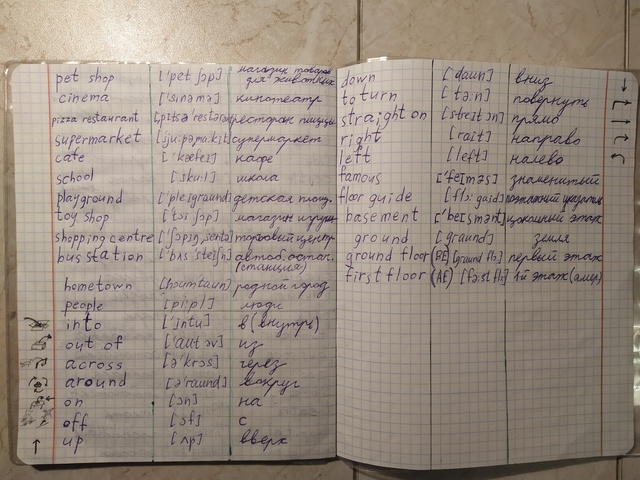 pet shop ['pet ʃɔp] магазин товаров для животных
cinema ['sinəmə] кинотеатр
pizza restaurant ресторан пиццы
supermarket супермаркет
cafe ['kæfei] кафе
school [sku:l] школа
playground ['pleiground] детская площ.
toy shop ['tɔi ʃɔp] магазин игруш
shopping centre торговый центр
bus station ['bʌs steiʃn] автоб. остан.
(станция)
hometown [houmtaun] родной город
people [pi:pl] люди
into ['intu] в (внутрь)
out of ['aut əv] из
across [ə'krɔs] через
around [ə'raund] вокруг
on [ɔn] на
off [ɔf] с
up [ʌp] вверх
down [daun] вниз
to turn [tə:n] повернуть
straight on [streit ɔn] прямо
right [rait] направо
left [left] налево
famous ['feiməs] знаменитый
floor guide [flɔ: guid] поэтажный указатель
basement ['beismənt] цокольный этаж
ground [graund] земля
ground floor (BE) [ground flɔ:] первый этаж
first floor (AE) [fə:st flɔ:] 1й этаж (амер)